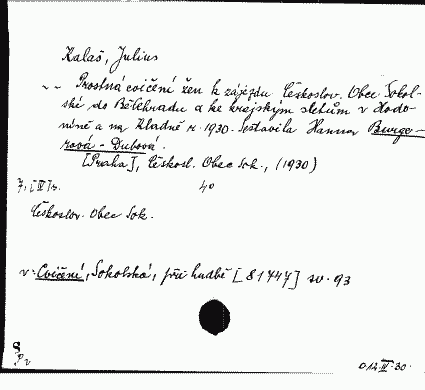 Kalaš, Julius
-- Prostná cvičení žen k zájezdu Českoslov. Obec Sokol-
ské do Bělehradu a ke krajským sletům v Hodo-
níně a na Kladně r. 1930. Sestavila Hanna Burge-
rová - Dubová.
[Praha], Českosl. Obec Sok., (1930)
7, [IV] s. 4°
Českoslov. Obec Sok.
v. Cvičení, Sokolská, při hudbě [81747] sv. 93
S
Pv
012.III-30.